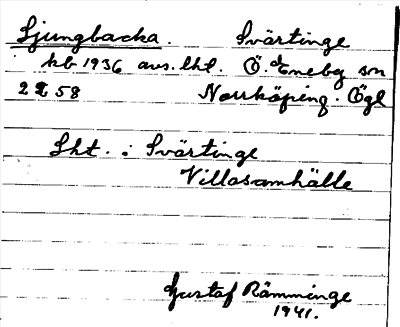 Ljungbacka. Svärtinge
kb 1936 avs. lht. Ö. Eneby sn
2 58 Norrköping. Ögl
Lht. i Svärtinge
Villasamhälle
Gustaf Rämminge
1941.